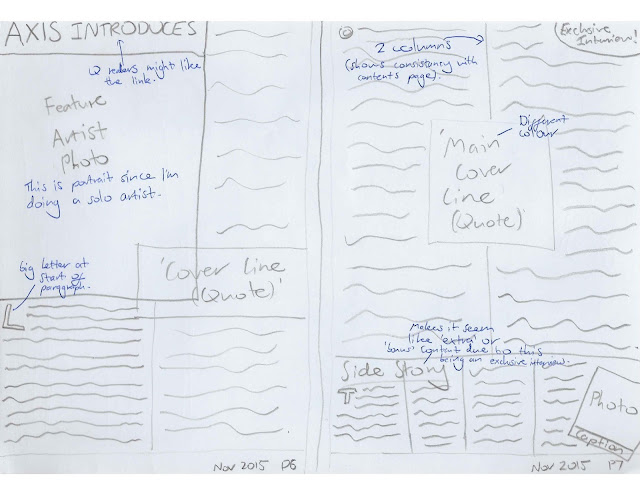 AXIS INTRODUCES
Q readers might like
the link.
Feature
Artist
Photo
This is portrait since I'm
doing a solo artist.
'Cover Line
(Quote)'
Big letter at
start of
paragraph.
L
Nov 2015 P6
2 columns
(shows consistency with
contents page).
Exclusive
Interview!
Different
colour
'Main
Cover
Line'
(Quote)'
Makes it seem
like 'extra' or
'bonus' content due to this
being an exclusive interview.
Side Story
T
Photo
Caption
Nov 2015 P7